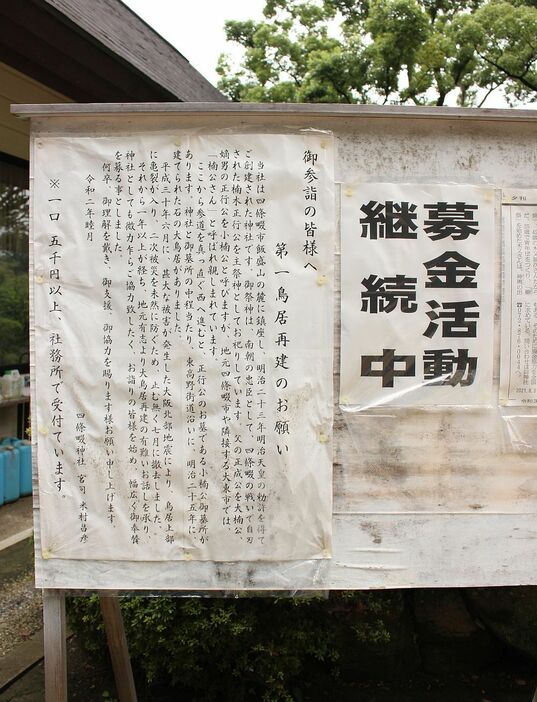 御参詣の皆様へ
第一鳥居再建のお願い
当社は四條畷市飯盛山の麓に鎮座し、明治二十三年明治天皇の勅許を得て
ご創建された神社です。御祭神は、南朝の忠臣として、四條畷の戦いで自刃
された楠木正行公を主祭神としてお祀りしています。父の正成公を大楠公、
嫡男の正行公を小楠公と呼びますが、地元四條畷市や隣接する大東市では、
「楠公さん」と呼ばれ親しまれています。
ここから参道を真っ直ぐ西へ進むと、正行公のお墓である小楠公御墓所が
あります。神社と御墓所の中程当たり、東高野街道沿いに、明治二十五年に
建てられた石の大鳥居がありました。
平成三十年六月に、甚大な被害が発生した大阪北部地震により、鳥居上部
に亀裂が入り、二次被害を未然に防ぐため、止む無く七月に撤去しました。
それから一年以上が経ち、地元有志より大鳥居再建の有難いお話しを承り、
神社としても微力ながらご協力致したく、お詣りの皆様を始め、幅広く御奉賛
を募る事としました。
何卒、御理解を戴き、御支援、御協力を賜ります様お願い申し上げます。
令和二年睦月
四條畷神社 宮司 米村昌彦
※一口 五千円以上、社務所で受付ています。
募金活動
継続中
夕刊